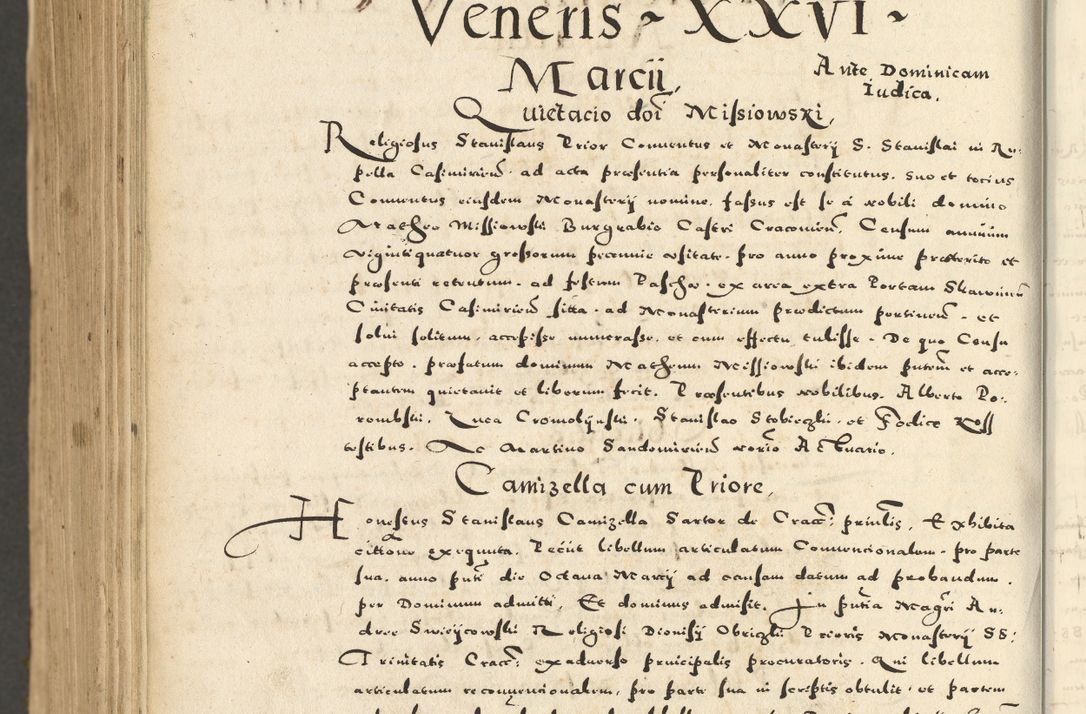 Veneris ~ XXVI ~
Marcii,
Ante Dominicam
Iudica.
Quietacio doi Missiowski,
Religiosus Stanislaus Prior Conuentus et Monastery S. Stanislai in Ru-
pella Casimirien ad acta præsentia personaliter constitutus. suo et tocius
Conuentus eiusdem Monastery nomine, fassus est se a nobili domino
Matheo Missiowski Burgrabio Castri Cracouien, Censum annuum
viginti quatuor grossorum pecunie vsitate. pro anno proxime præterito et
præsenti retentum. ad festum Paschæ. ex area extra Portam Skawinen
Ciuitatis Casimirien sitta. ad Monasterium prædictum pertinen. et
solui solitum, accepisse numerasse, et cum effectu tulisse. De quo Censu
accepto. præfatum dominum Matheum Missiowski ibidem pntem et acce-
ptantem quietauit et liberum fecit. Præsentibus nobilibus. Alberto Po-
rembski. Luca Cromolynski. Stanislao Stobieczki. et Foelice
testibus. Ac Martino Sandomirien norio Actuario.
Camizella cum Priore,
Honestus Stanislaus Camizella Sartor de Crac: prinlis, Exhibita
cittone exequuta. Petiit libellum articulatum Conuencionalem. pro parte
sua. anno pnti die Octaua Marcy ad causam datum ad probandum.
per Dominum admitti, Et dominus admisit. In pntia Magri An-
dree Swieycowski Religiosi Dionisy Obrigki Prioris Monastery SS:
Trinitatis Crac: ex aduerso principalis procuratoris. Qui libellum
articulatum reconuencionalem, pro parte sua in scriptis obtulit. et partem